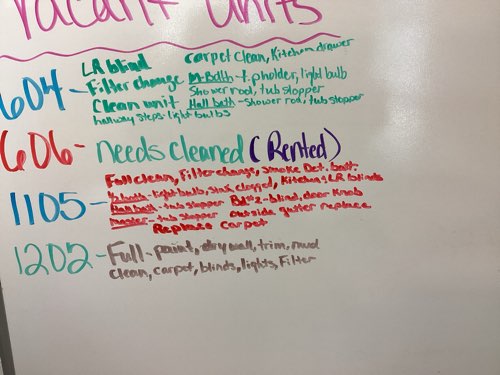 Vacant Units
604- LR blind carpet clean, Kitchen drawer
Filter change M-Bath - t.pholder, light bulb
Shower rod, tub stopper
Clean unit Hall bath - Shower rod, tub stopper
hallway steps-light bulbs
606- Needs Cleaned (Rented)
Full clean, Filter change, Smoke Det. batt.
1105- light bulb, Sink clogged, Kitchen, LR blinds
Hall bath - tub stopper Bd#2-blind, door Knob
Master - tub stopper outside gutter replace
Replace carpet
1202- Full - paint, drywall, trim, mud
Clean, carpet, blinds, lights, Filter